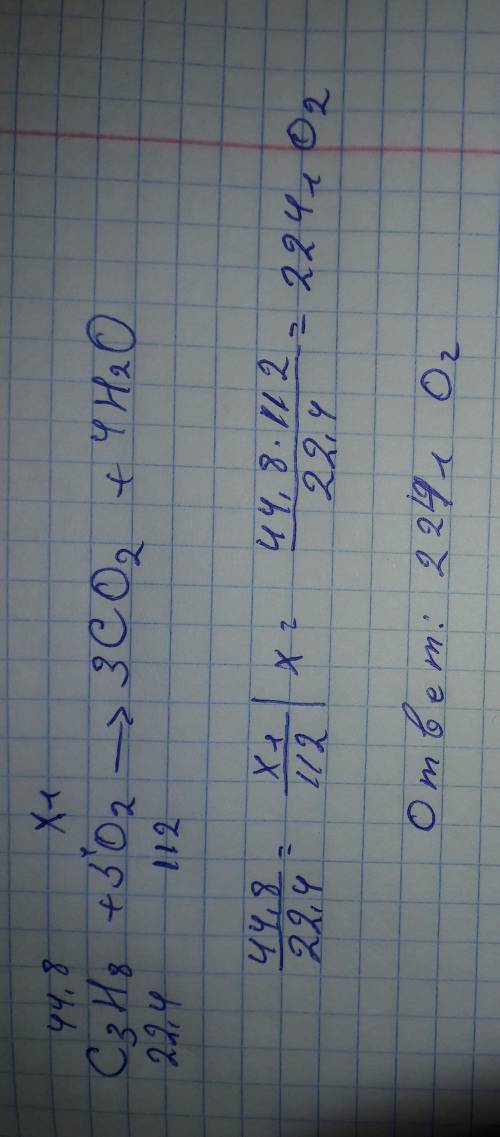 44,8 хл
C3H8 + 5O2 → 3CO2 + 4H2O
22,4 112
44,8/22,4 = хл/112 | x = 44,8·112/22,4 = 224 л O2
Ответ: 224 л O2